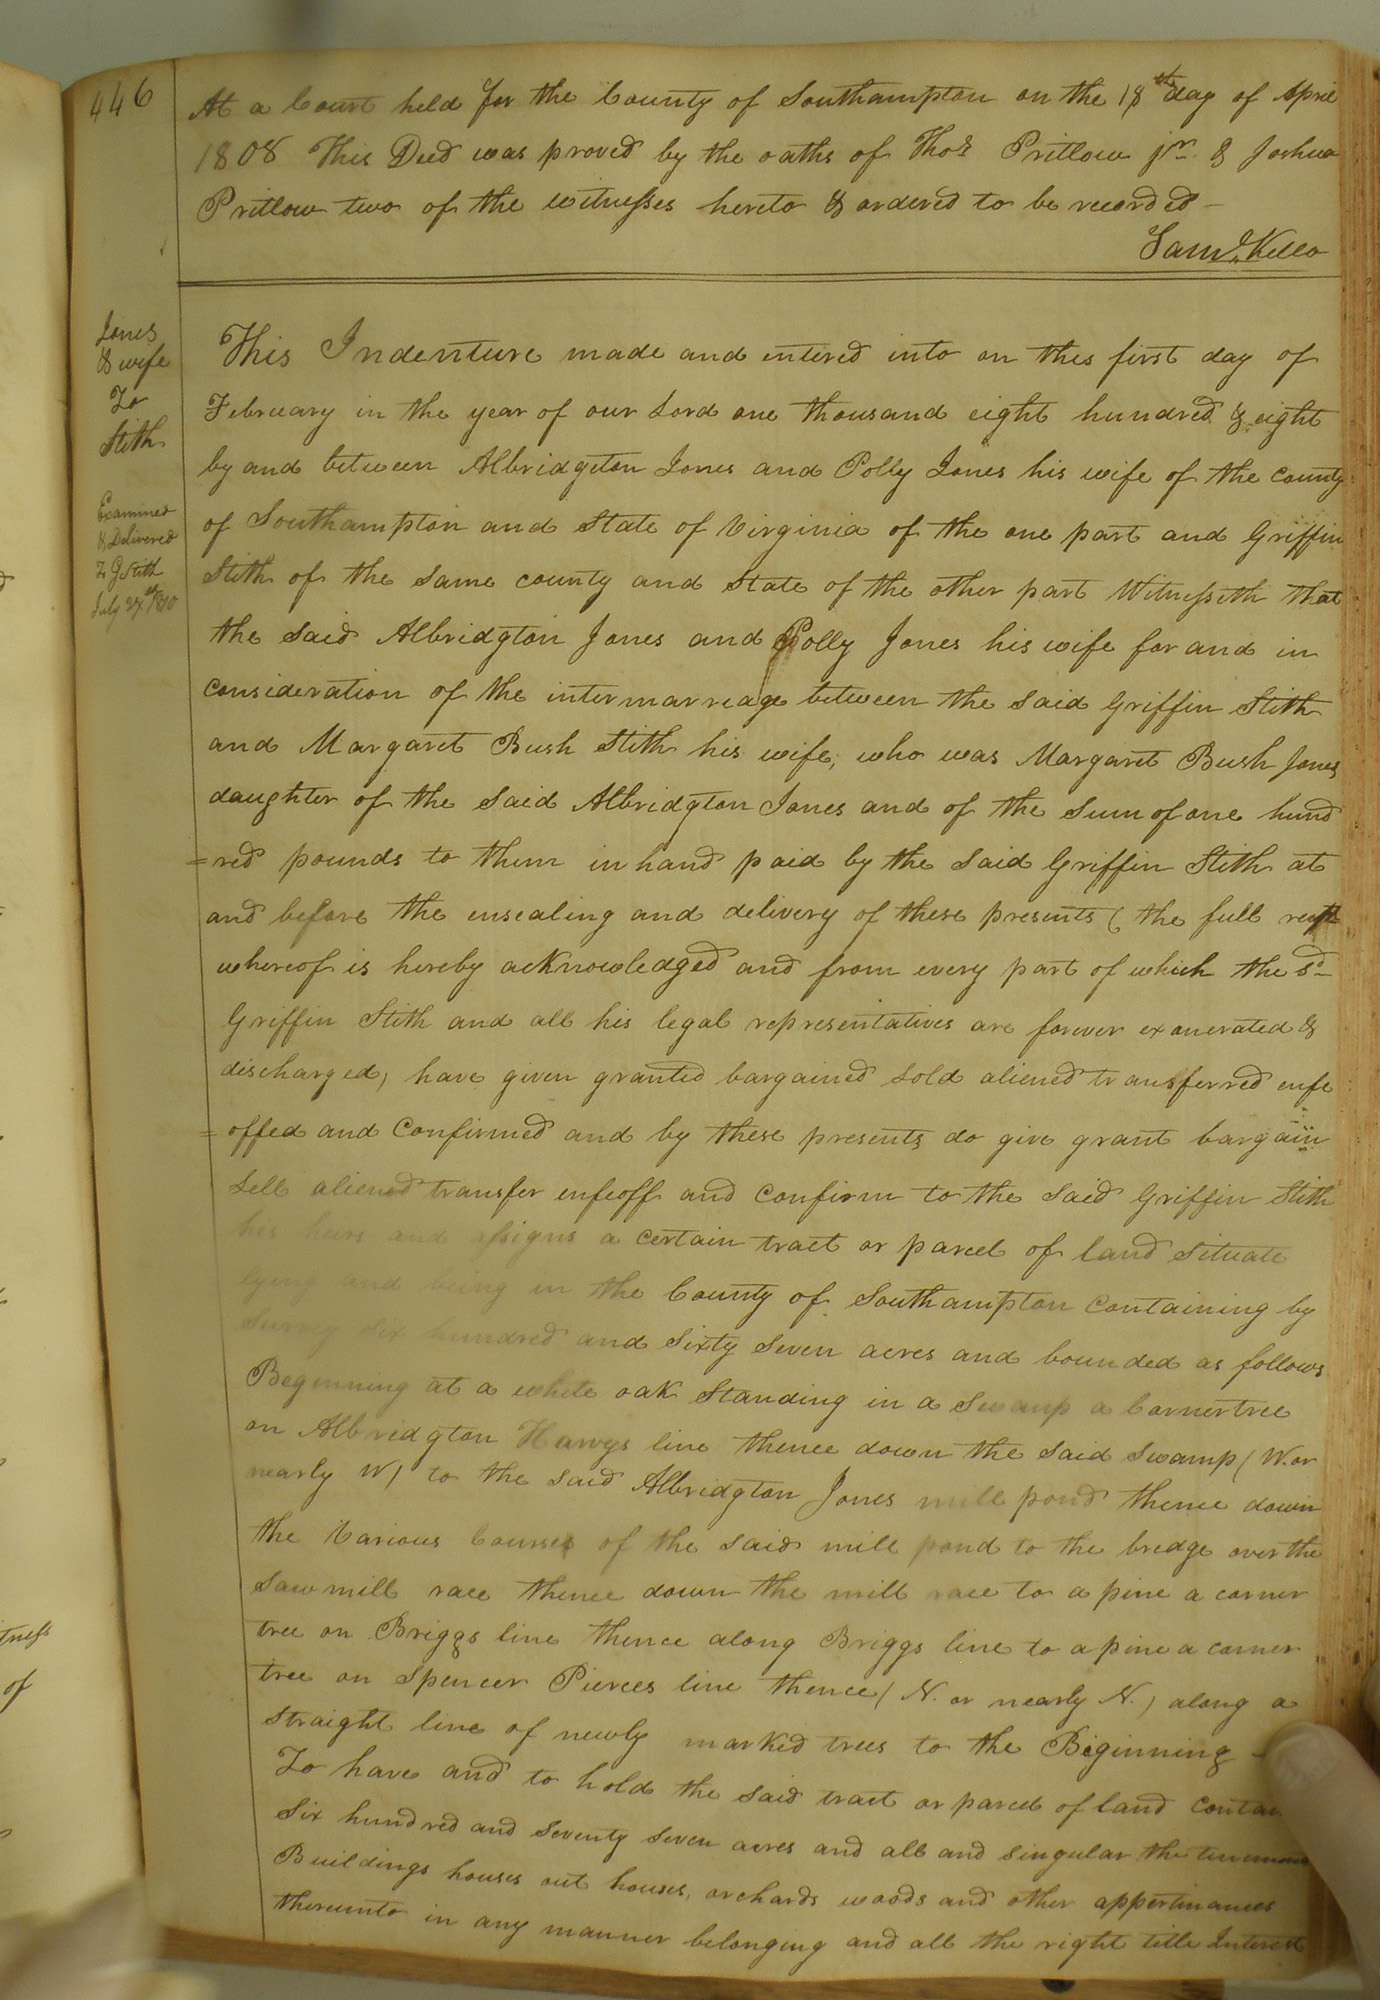 446
At a Court held for the County of Southampton on the 18th day of April
1808 This Deed was proved by the oaths of Thos Pritlow jr. & Joshua
Pritlow two of the witnesses hereto & ordered to be recorded –
Saml. Kello
Jones
& wife
To
Stith
Examined
& Delivered
to G Stith
July 27th 1810
This Indenture made and entered into on this first day of
February in the year of our Lord one thousand eight hundred & eight
by and between Albridgton Jones and Polly Jones his wife of the county
of Southampton and State of Virginia of the one part and Griffin
Stith of the same county and State of the other part Witnesseth that
the said Albridgton Jones and Polly Jones his wife for and in
consideration of the intermarreage between the said Griffin Stith
and Margaret Bush Stith his wife, who was Margaret Bush Jones
daughter of the said Albridgton Jones and of the sum of one hund
=red pounds to them in hand paid by the said Griffin Stith at
and before the ensealing and delivery of these presents ( the full
whereof is hereby acknowledged and from every part of which the sd.
Griffin Stith and all his legal representatives are forever exonerated &
discharged, have given granted bargained sold aliened transferred enfe
=offed and confirmed and by these presents do give grant bargain
sell aliened transfer enfeoff and confirm to the said Griffin Stith
his heirs and assigns a certain tract or parcel of land situate
lying and being in the County of Southampton containing by
survey six hundred and sixty seven acres and bounded as follows
Beginning at a white oak standing in a swamp a Corner tree
on Albridgton line thence down the said swamp ( W. or
nearly W) to the said Albridgton Jones mill pond thence down
the Various Courses of the said mill pond to the bredge over the
saw mill race thence down the mill race to a pine a corner
tree on Briggs line thence along Briggs line to a pine a corner
tree on Spencer Pierces line thence ( N. or nearly N. ) along a
straight line of newly marked trees to the Beginning –
To have and to hold the said tract or parcel of land contai
six hundred and seventy seven acres and all and singular the
Buildings houses out houses, orchards woods and other appertinances
thereunto in any manner belonging and all the right title Interest
tness
of